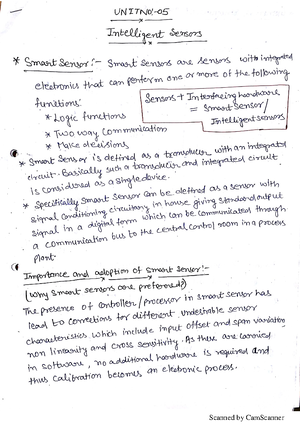 UNIT NO:-05
Intelligent Sensors
* Smart Sensor:- Smart Sensors are sensors with integrated
electronics that can perform one or more of the following
functions:
* Logic functions
* Two way Communication
* Make decisions
Sensors + Interfacing hardware
= Smart Sensor/
Intelligent sensors
* Smart Sensor is defined as a transducer with an integrated
circuit. Basically such a transducer and integrated circuit
is considered as a single device.
* Specifically Smart Sensor can be defined as a sensor with
signal conditioning circuitary in house giving standard output
signal in a digital form which can be communicated through
a communication bus to the central control room in a process
plant.
Importance and adoption of Smart Sensor:-
(Why smart sensors are preferred?)
The presence of controller/processor in smart sensor has
lead to corrections for different undesirable sensor
characteristics which include input offset and span variation
non linearity and cross sensitivity. As these are carried
in software, no additional hardware is required and
thus calibration becomes an electronic process.
Scanned by CamScanner